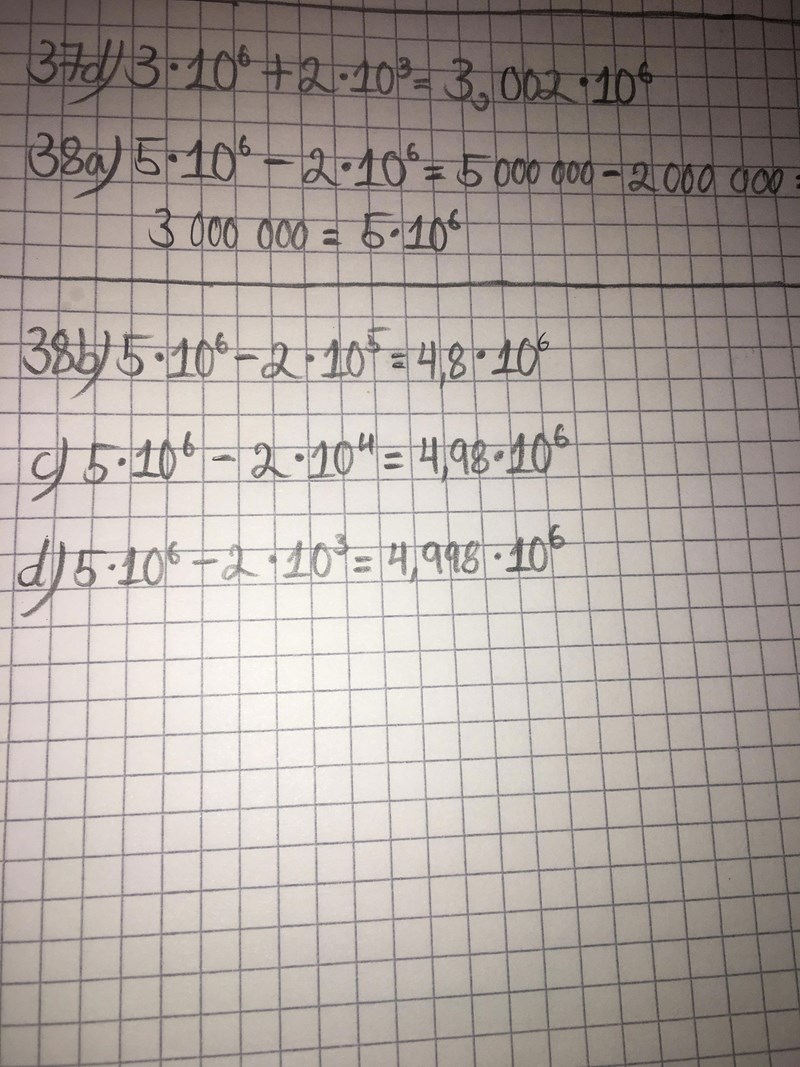 37d) 3·10⁶ + 2·10³ = 3,002·10⁶
38a) 5·10⁶ - 2·10⁶ = 5 000 000 - 2 000 000 =
3 000 000 = 5·10⁶
38b) 5·10⁶ - 2·10⁵ = 4,8·10⁶
c) 5·10⁶ - 2·10⁴ = 4,98·10⁶
d) 5·10⁶ - 2·10³ = 4,998·10⁶